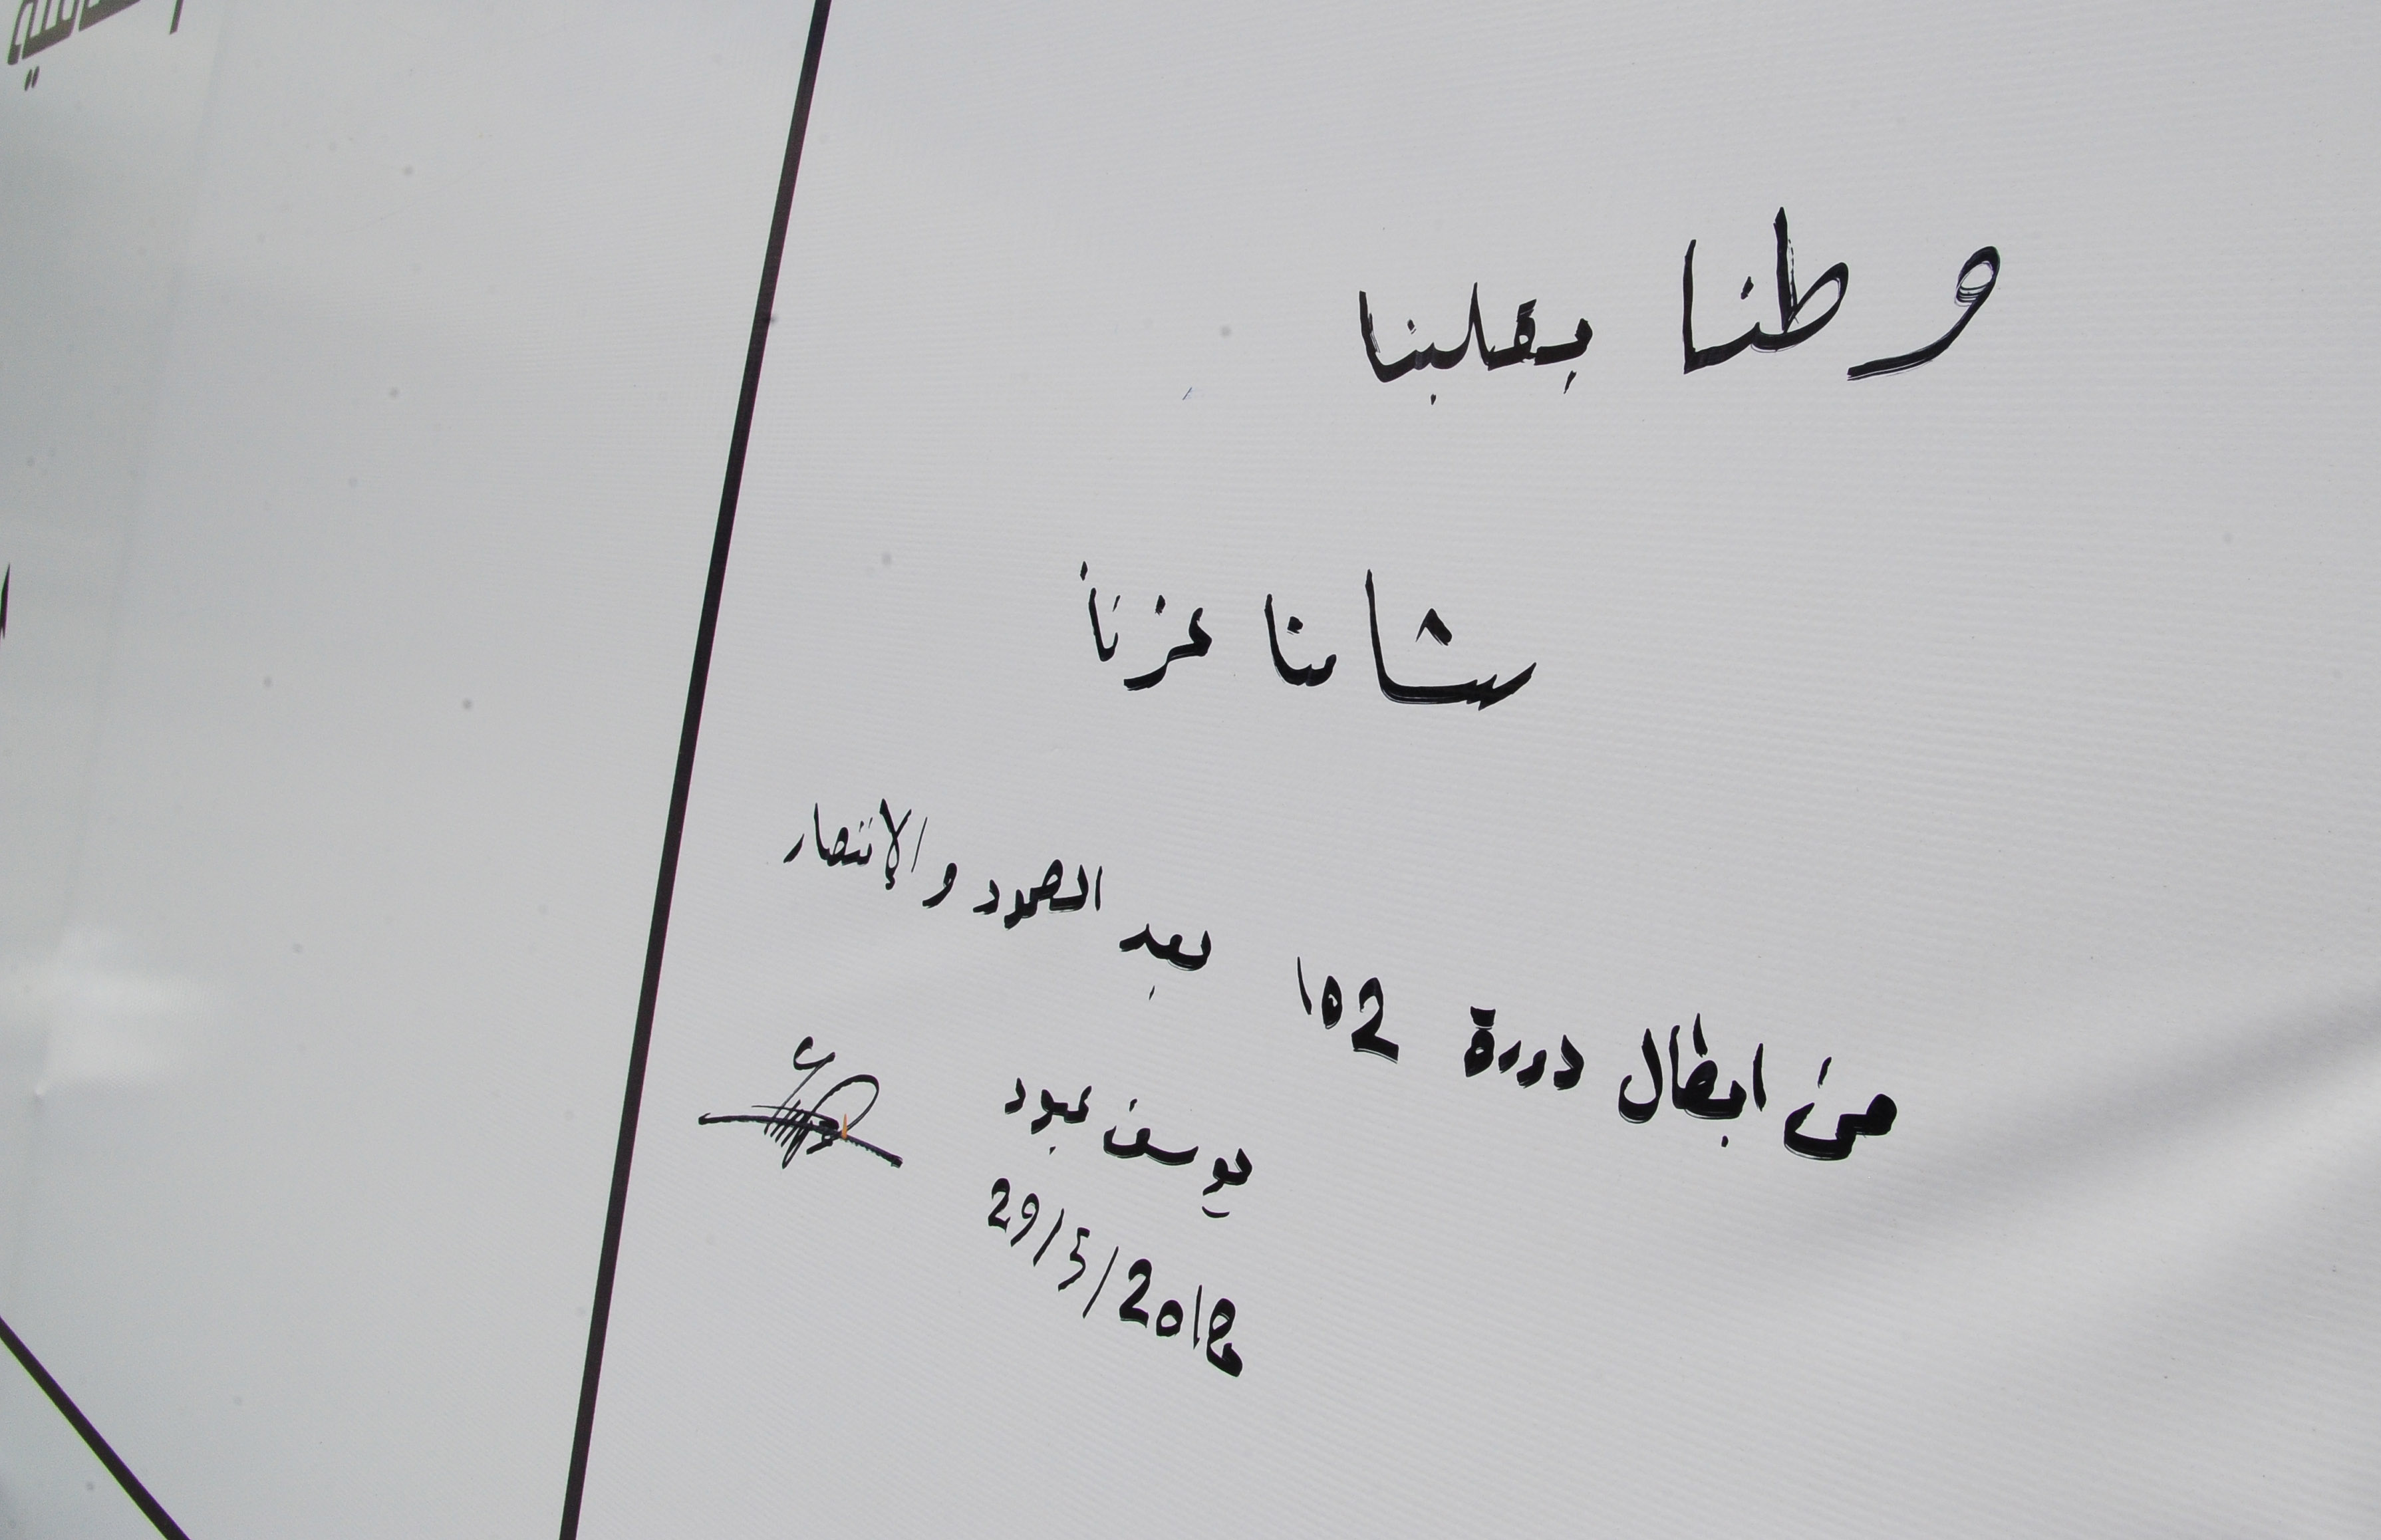 وطنا بقلبنا
شامنا عزنا
من ابطال دورة 102 بعد الصمود و الإنتصار
يوسف عبود
29/5/2018